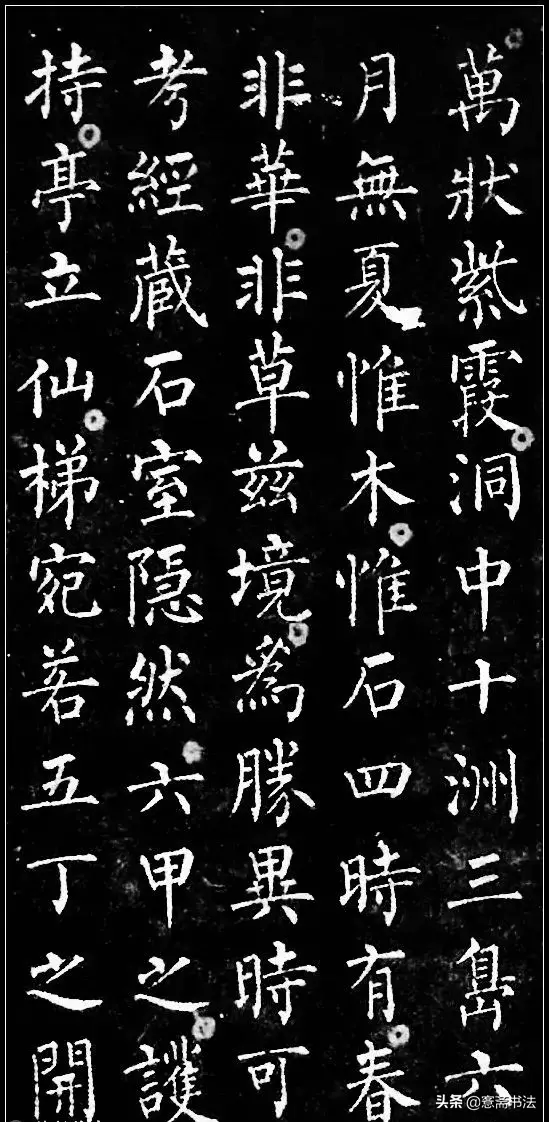 萬狀紫霞洞中十洲三島六
月無夏惟木惟石四時有春
非華非草兹境爲勝異時可
考經蔵石室隐然六甲之護
持亭立仙梯宛若五丁之開
头条@憙斋书法